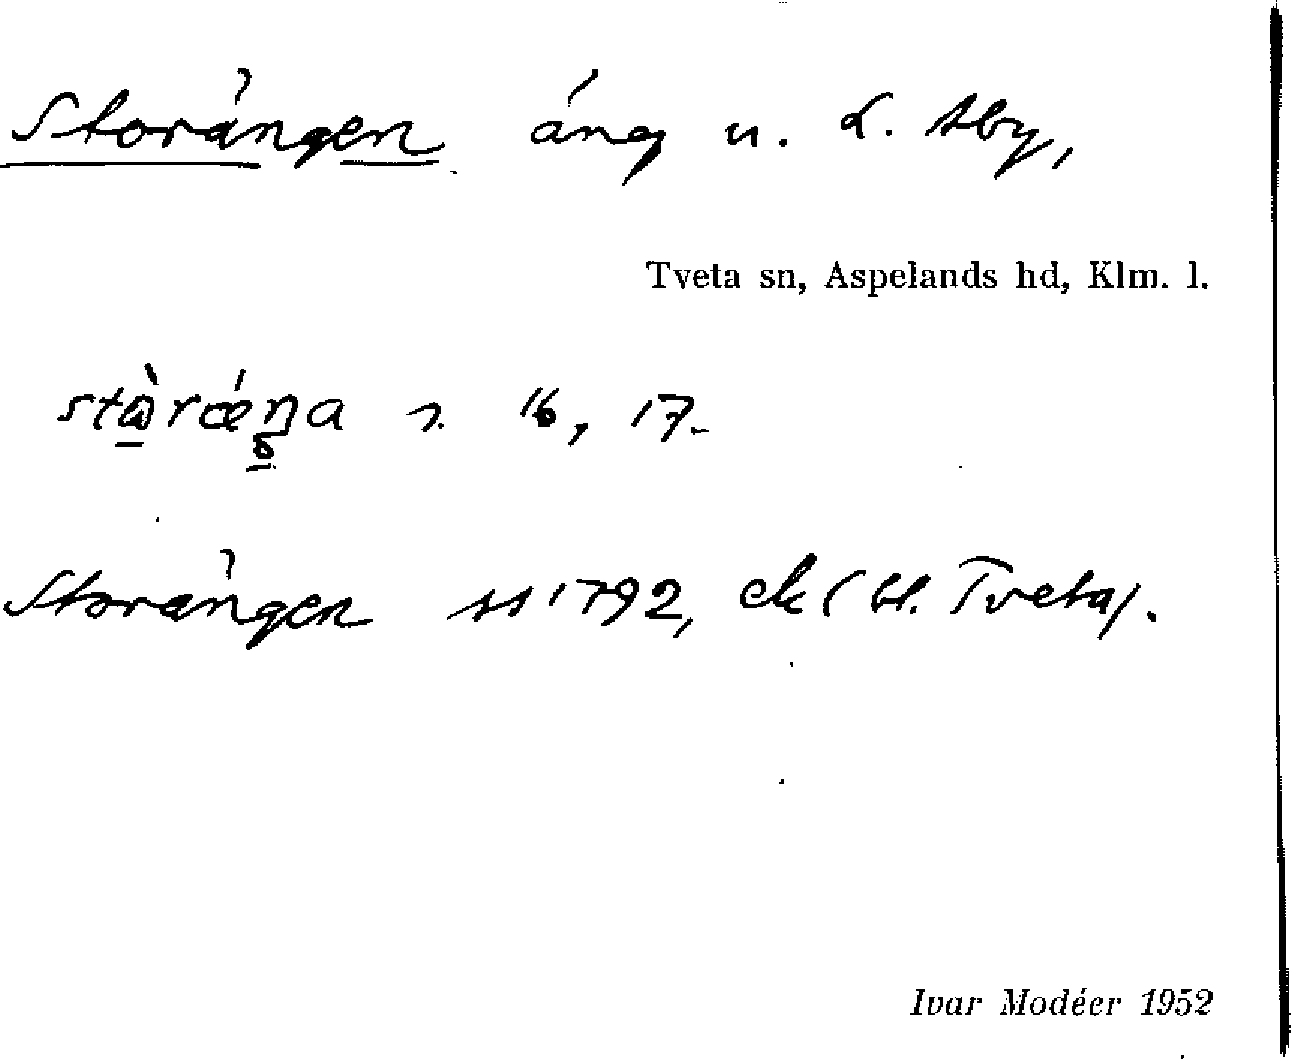 Storängen äng u. L. Aby,
Tveta sn, Aspelands hd, Klm. l.
16, 17.
Storängen 1792, ek (bl. Tveta).
Ivar Modéer 1952